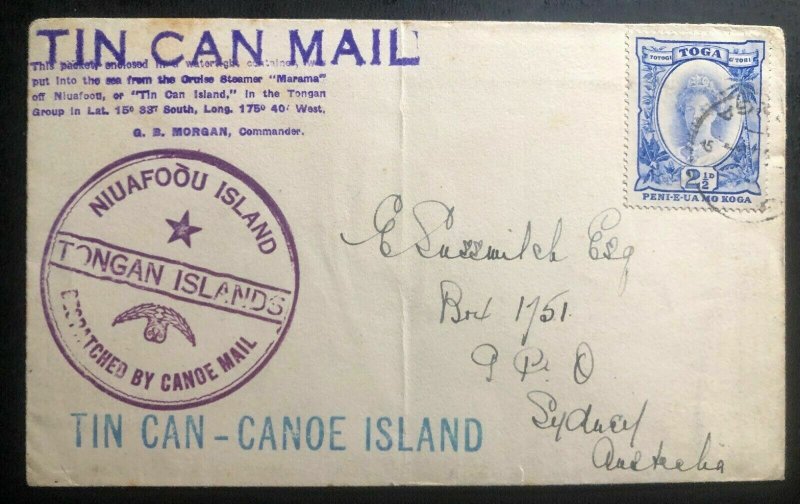 TIN CAN MAIL
This packet, enclosed in a watertight container, was
put into the sea from the Cruise Steamer "Marama"
off Niuafoou, or "Tin Can Island," in the Tongan
Group in Lat. 15º 33' South, Long. 175º 40' West.
G. B. MORGAN, Commander.
TOGA
TOTOGI
2½D
PENI-E-UA MO KOGA
NIUAFOÒU ISLAND
TONGAN ISLANDS
DESPATCHED BY CANOE MAIL
E Sussmilch Esq
Box 1751
G P O
Sydney
Australia
TIN CAN - CANOE ISLAND